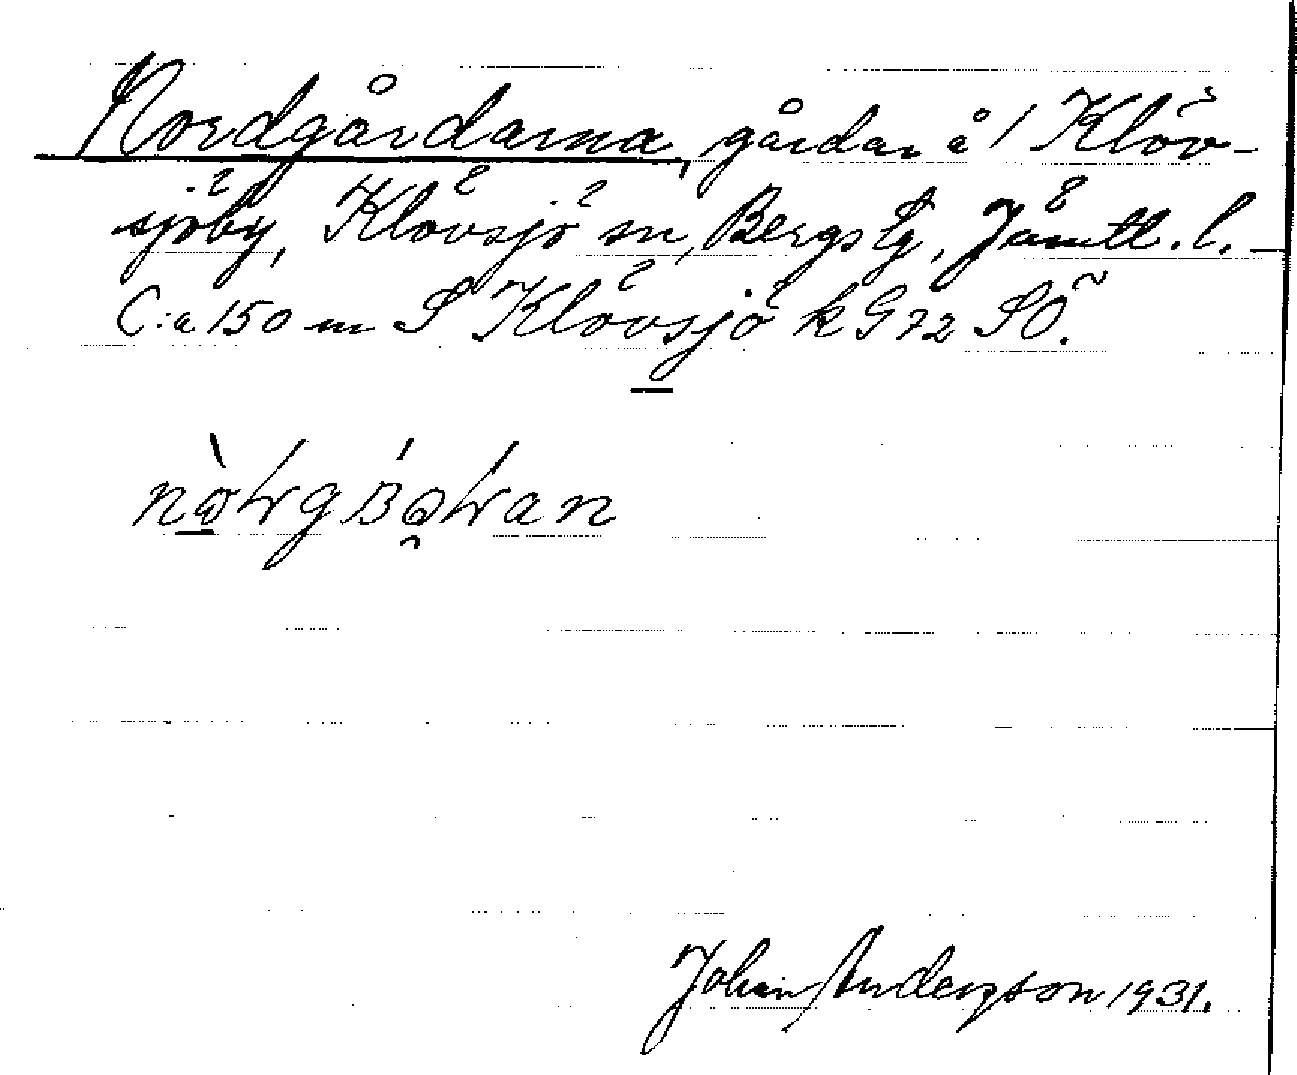 Nordgårdarna, gårdar å 1 Klöv-
sjöby, Klövsjö sn, Bergs tg, Jämtl. l.
C:a 150 m S Klövsjö k G72 SÖ.
Johan Anderzson 1931.